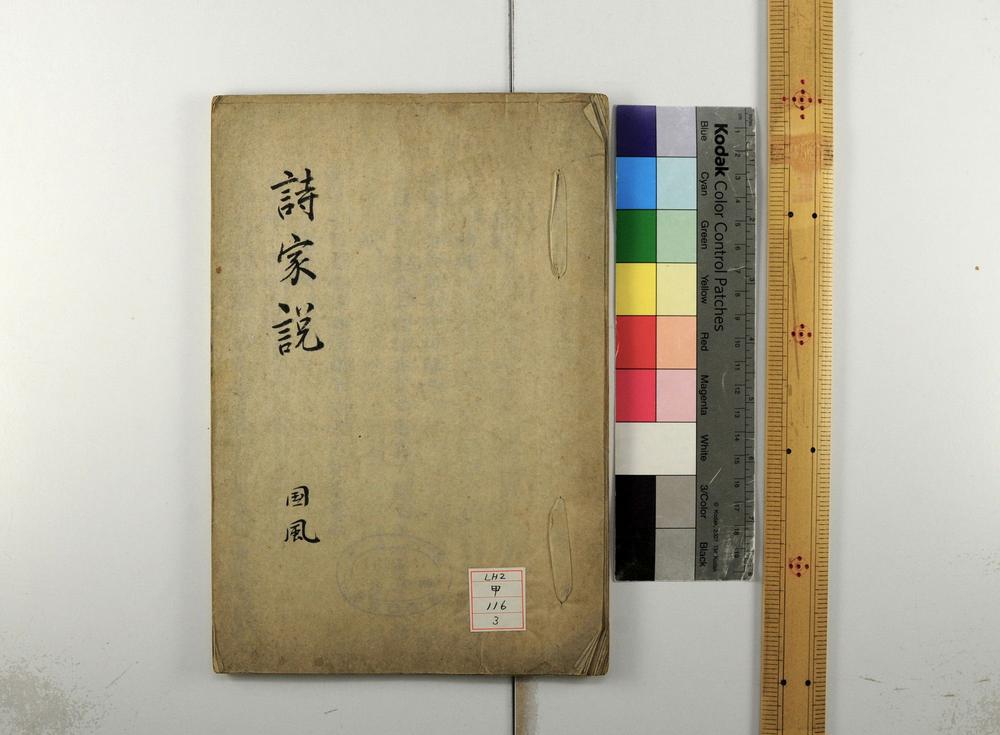 詩家説
国風
LH2
甲
116
3
Kodak Color Control Patches
Blue
Cyan
Green
Yellow
Red
Magenta
White
3/Color
Black